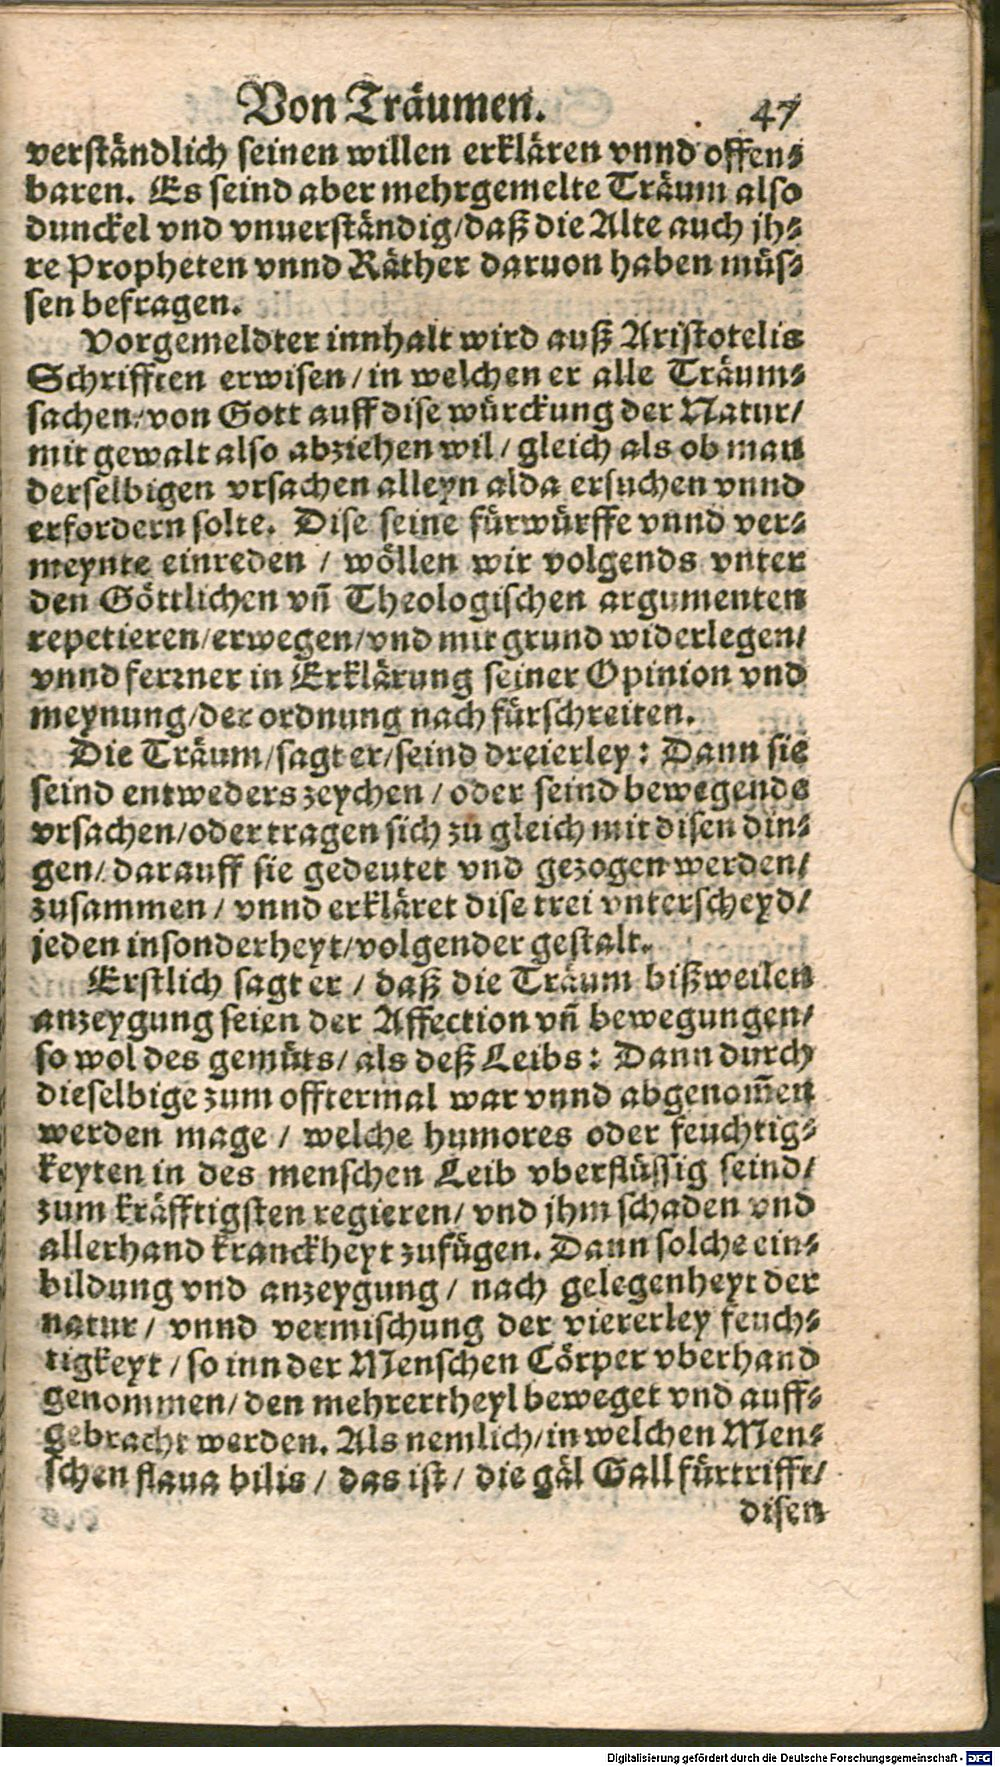 Von Träumen. 47
verständlich seinen willen erklären vnnd offen⸗
baren. Es seind aber mehrgemelte Träum also
dunckel vnd vnuerständig/daß die Alte auch jh⸗
re Propheten vnnd Räther daruon haben müs⸗
sen befragen.
Vorgemeldter innhalt wird auß Aristotelis
Schrifften erwisen/in welchen er alle Träum⸗
sachen/von Gott auff dise würckung der Natur/
mit gewalt also abziehen wil/gleich als ob man
derselbigen vrsachen alleyn alda ersuchen vnnd
erfordern solte. Dise seine fürwürffe vnnd ver⸗
meynte einreden / wöllen wir volgends vnter
den Göttlichen vñ Theologischen argumenten
repetieren/erwegen/vnd mit grund widerlegen/
vnnd ferrner in Erklärung seiner Opinion vnd
meynung/der ordnung nach fürschreiten.
Die Träum/sagt er/seind dreierley: Dann sie
seind entweders zeychen / oder seind bewegende
vrsachen/oder tragen sich zu gleich mit disen din⸗
gen/darauff sie gedeutet vnd gezogen werden/
zusammen / vnnd erkläret dise trei vnterscheyd/
jeden insonderheyt/volgender gestalt.
Erstlich sagt er / daß die Träum bißweilen
anzeygung seien der Affection vñ bewegungen/
so wol des gemüts/als deß Leibs: Dann durch
dieselbige zum offtermal war vnnd abgenom̃en
werden mage / welche humores oder feuchtig⸗
keyten in des menschen Leib vberflüssig seind/
zum kräfftigsten regieren/ vnd jhm schaden vnd
allerhand kranckheyt zufügen. Dann solche ein⸗
bildung vnd anzeygung / nach gelegenheyt der
natur / vnnd vermischung der viererley feuch⸗
tigkeyt / so inn der Menschen Cörper vberhand
genommen/den mehrertheyl beweget vnd auff⸗
gebracht werden. Als nemlich/in welchen Men⸗
schen flaua bilis / das ist / die gäl Gall fürtrifft/
disen
Digitalisierung gefördert durch die Deutsche Forschungsgemeinschaft - DFG